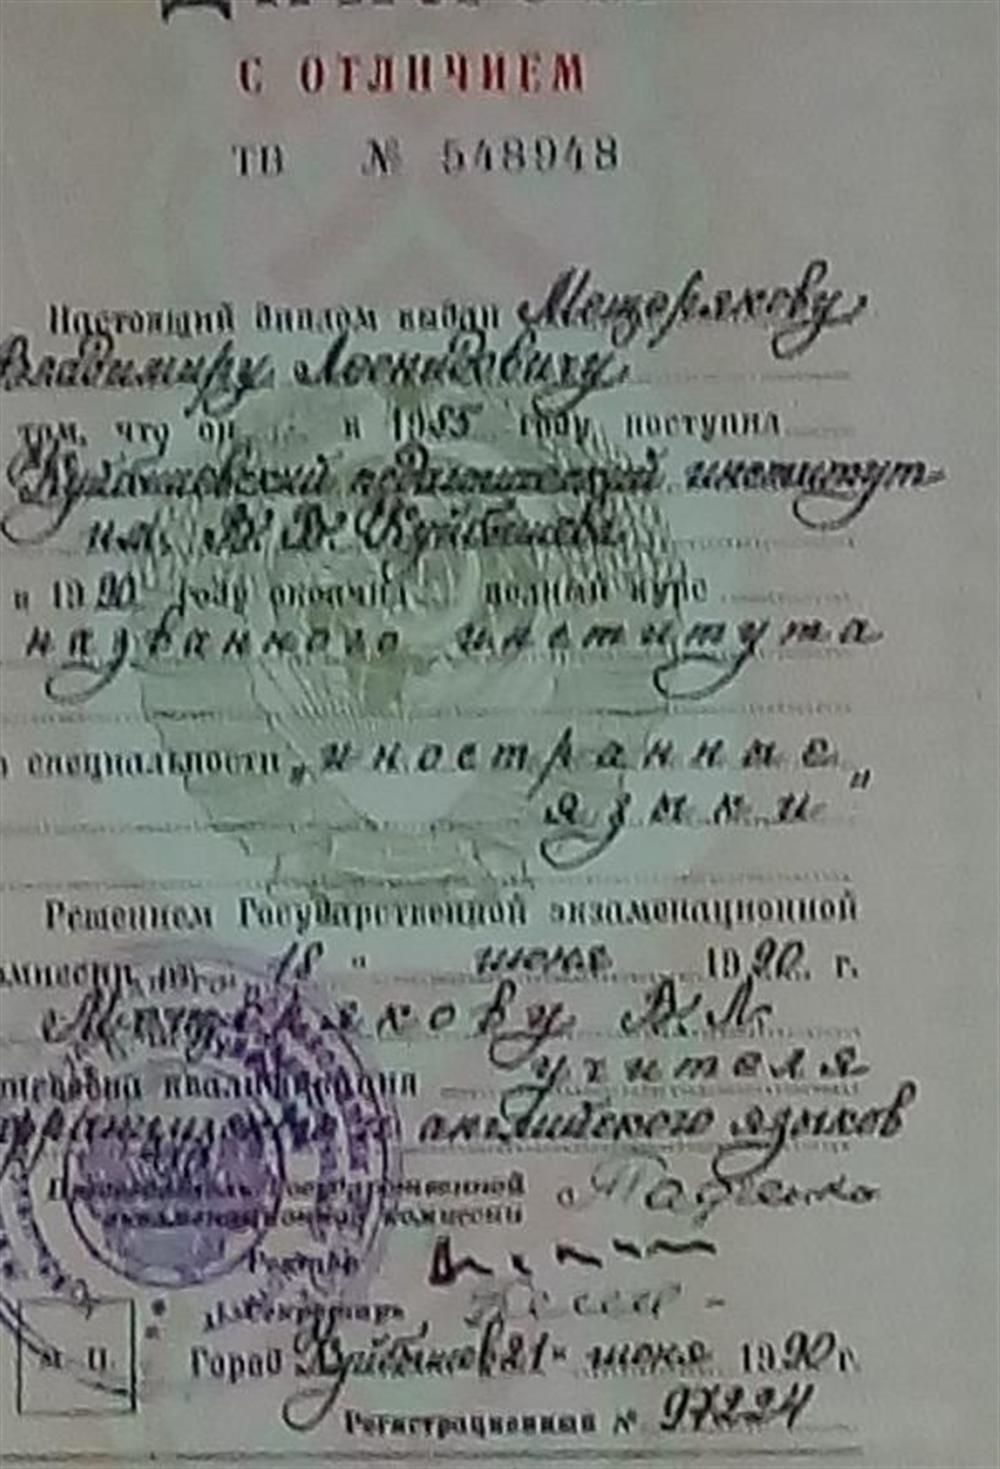 С ОТЛИЧИЕМ
ТВ № 548948
Настоящий диплом выдан Мещерякову
Владимиру Леонидовичу
том, что он в 1985 году поступил
Куйбышевский педагогический институт
им. В. В. Куйбышева
в 1990 году окончил полный курс
названного института
специальности „иностранные
языки"
Решением Государственной экзаменационной
комиссии от „18" июня 1990 г.
Мещерякову В.Л.
присвоена квалификация учителя
французского и английского языков
Председатель Государственной
экзаменационной комиссии
Ректор
Секретарь
М. П. Город Куйбышев 21" июня 1990 г.
Регистрационный № 97224